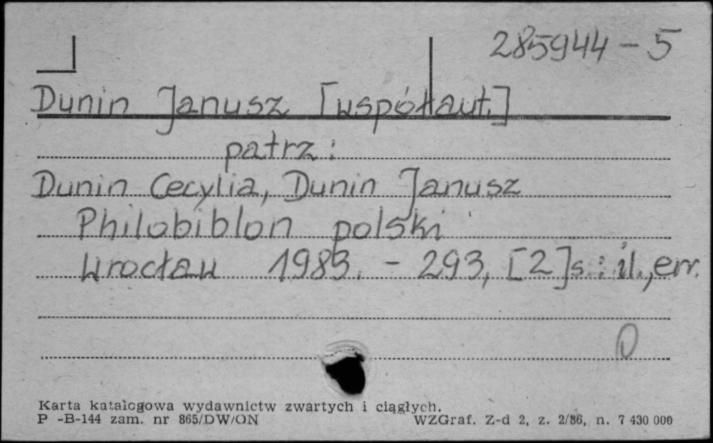 285944-5
Dunin Janusz [współaut.]
patrz:
Dunin Cecylia, Dunin Janusz
Philobiblon polski
Wrocław 1983. - 293, [2]s.: il., err.
D
Karta katalogowa wydawnictw zwartych i ciągłych.
P -B-144 zam. nr 865/DW/ON WZGraf. Z-d 2, z. 2/86, n. 7 430 000